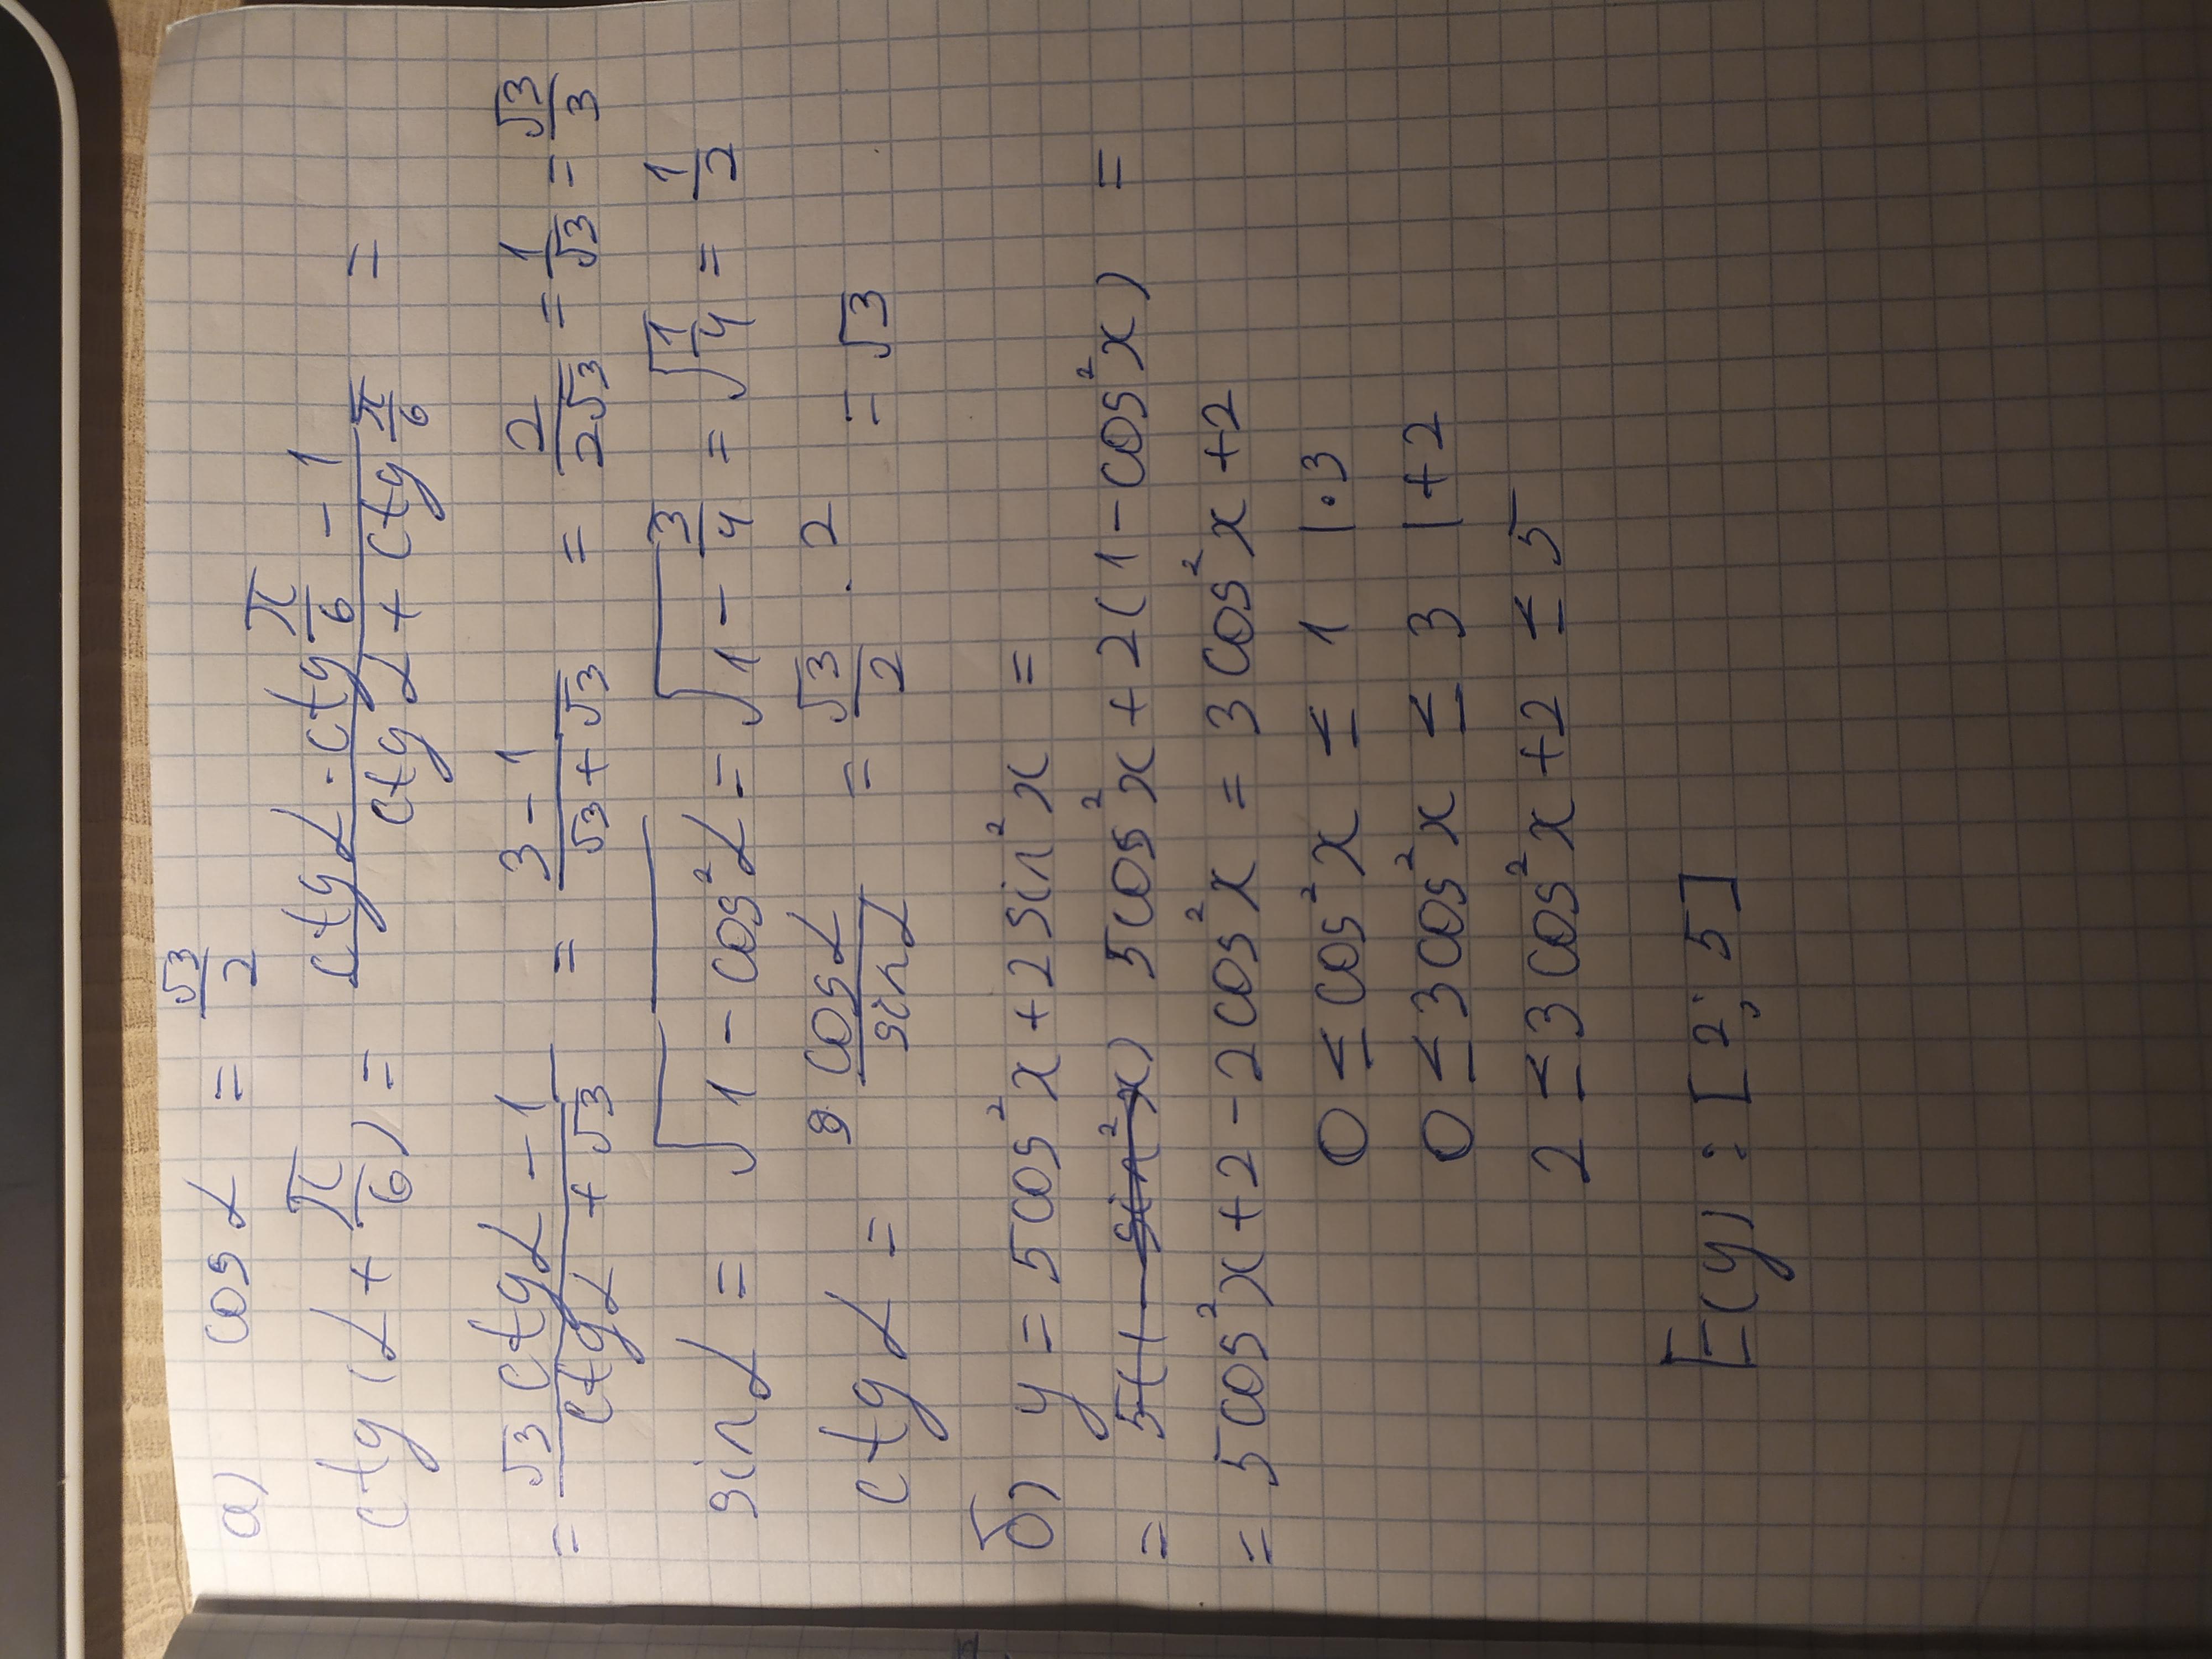 а) cos α = √3/2
ctg (α + π/6) = (ctg α · ctg π/6 - 1)/(ctg α + ctg π/6) =
= (√3 ctg α - 1)/(ctg α + √3) = (3 - 1)/(√3 + √3) = 2/(2√3) = 1/√3 = √3/3
sin α = √(1 - cos² α) = √(1 - 3/4) = √(1/4) = 1/2
ctg α = cos α/sin α = √3/2 · 2 = √3
б) y = 5cos² x + 2sin² x =
= 5(1 - sin² x) 5cos² x + 2(1 - cos² x) =
= 5cos² x + 2 - 2cos² x = 3cos² x + 2
0 ≤ cos² x ≤ 1 |·3
0 ≤ 3cos² x ≤ 3 |+2
2 ≤ 3cos² x + 2 ≤ 5
E(y): [2; 5]